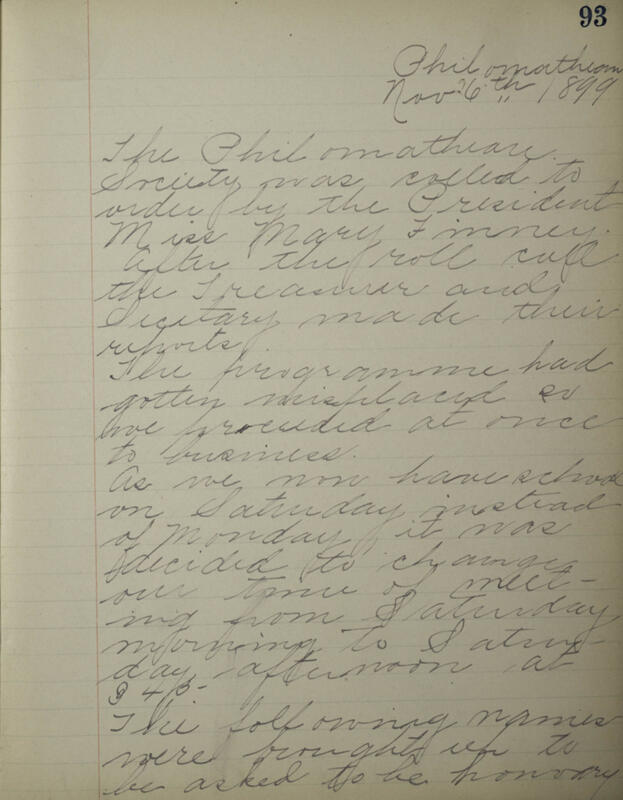 93
Philomathean
Nov 26th 1899
The Philomathean
Society was called to
order by the President
Miss Mary Finney.
After the roll call
the Treasurer and
Secetary made their
reports
The programme had
gotten misplaced so
we proceeded at once
to business.
As we now have school
on Saturday instead
of Monday it was
decided to change
our time of meet-
ing from Saturday
morning to Satur-
day afternoon at
3 45-
The following names
were brought up to
be asked to be honorary